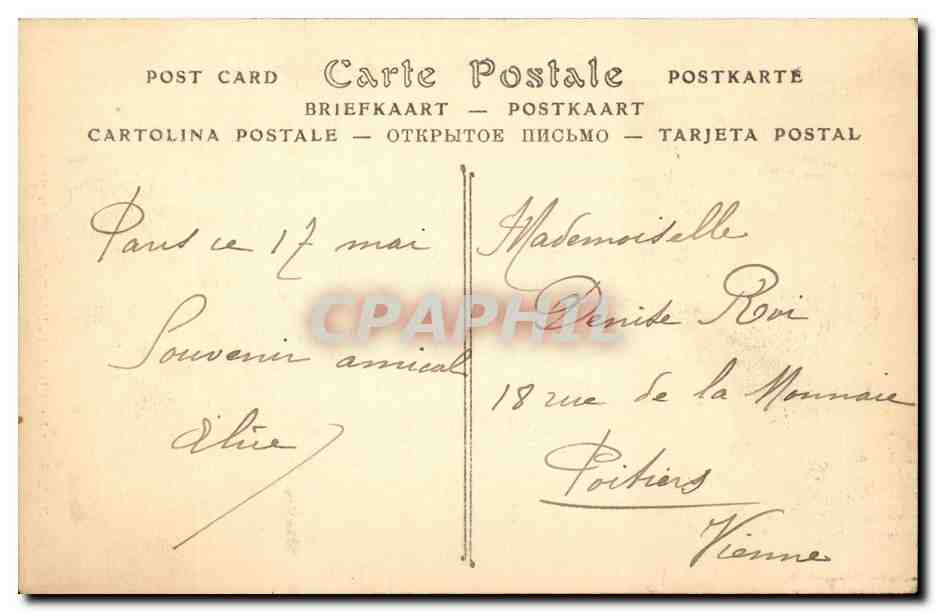 POST CARD Carte Postale POSTKARTE
BRIEFKAART — POSTKAART
CARTOLINA POSTALE — ОТКРЫТОЕ ПИСЬМО — TARJETA POSTAL
Paris ce 17 mai
Souvenir amical
Mademoiselle
Denise Roi
18 rue de la Monnaie
Poitiers
Vienne
CPAPHIL